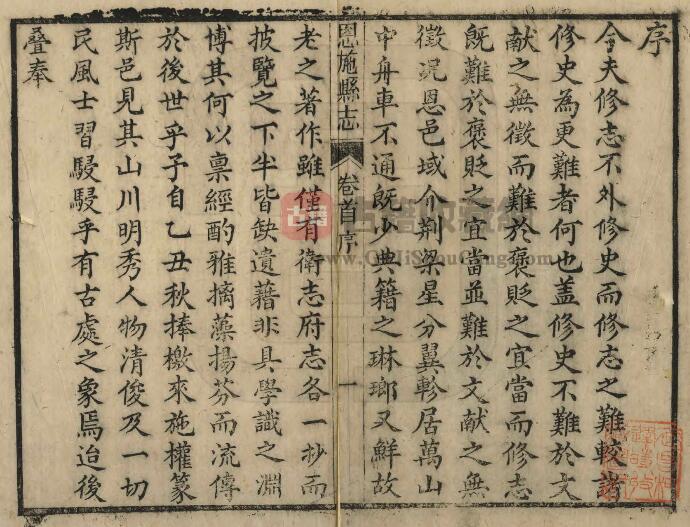 序
今夫修志不外修史而修志之難較諸
修史為更難者何也盖修史不難於文
献之無徵而難於褒貶之宜當而修志
既難於褒貶之宜當並難於文献之無
徵況恩邑域介荆梁星分翼軫居萬山
中舟車不通既少典籍之琳瑯又鮮故
恩施縣志
卷首序
一
老之著作雖僅有衛志府志各一抄而
披覽之下半皆缺遺藉非具學識之淵
博其何以稟經酌雅摛藻揚芬而流傳
於後世乎予自乙丑秋捧檄來施權篆
斯邑見其山川明秀人物清俊及一切
民風士習駸駸乎有古處之象焉迨後
叠奉
古籍
www.GuJiShouCang.com